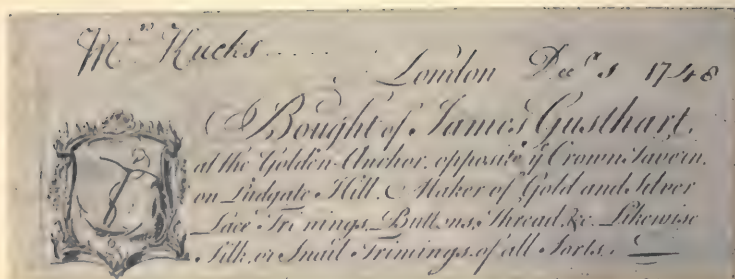 Mrs Kucks.....
London Decr 1 1748
Bought of James Gusthart,
at the Golden-Anchor, opposite ye Crown-Tavern,
on Ludgate-Hill. Maker of Gold and Silver
Lace Trimings, Buttons, Thread, &c. Likewise
Silk, or Snail Trimings, of all Sorts.